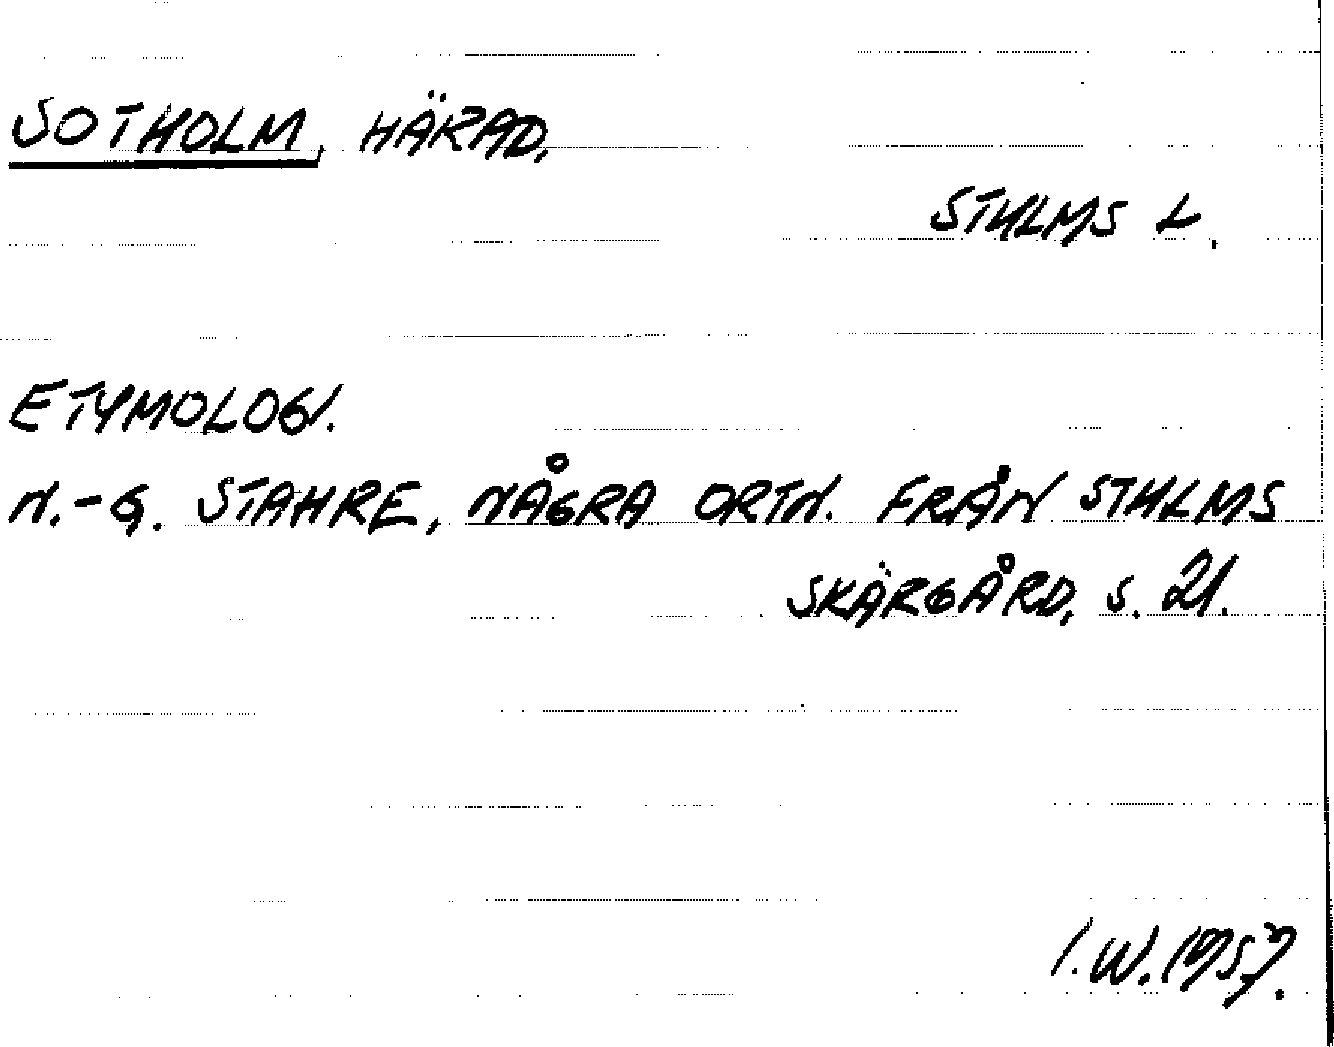 SOTHOLM, HÄRAD,
STHLMS L.
ETYMOLOGI.
N.-G. STAHRE, NÅGRA ORTN. FRÅN STHLMS
SKÄRGÅRD, S. 21.
I.W. 1957.